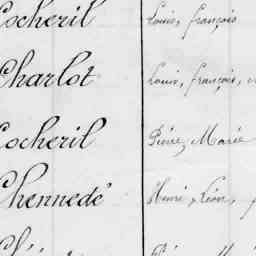 Cocheril Louis, françois
Charlot Louis, françois,
Cocheril Pierre, Marie
Chennedé Henri, Léon,